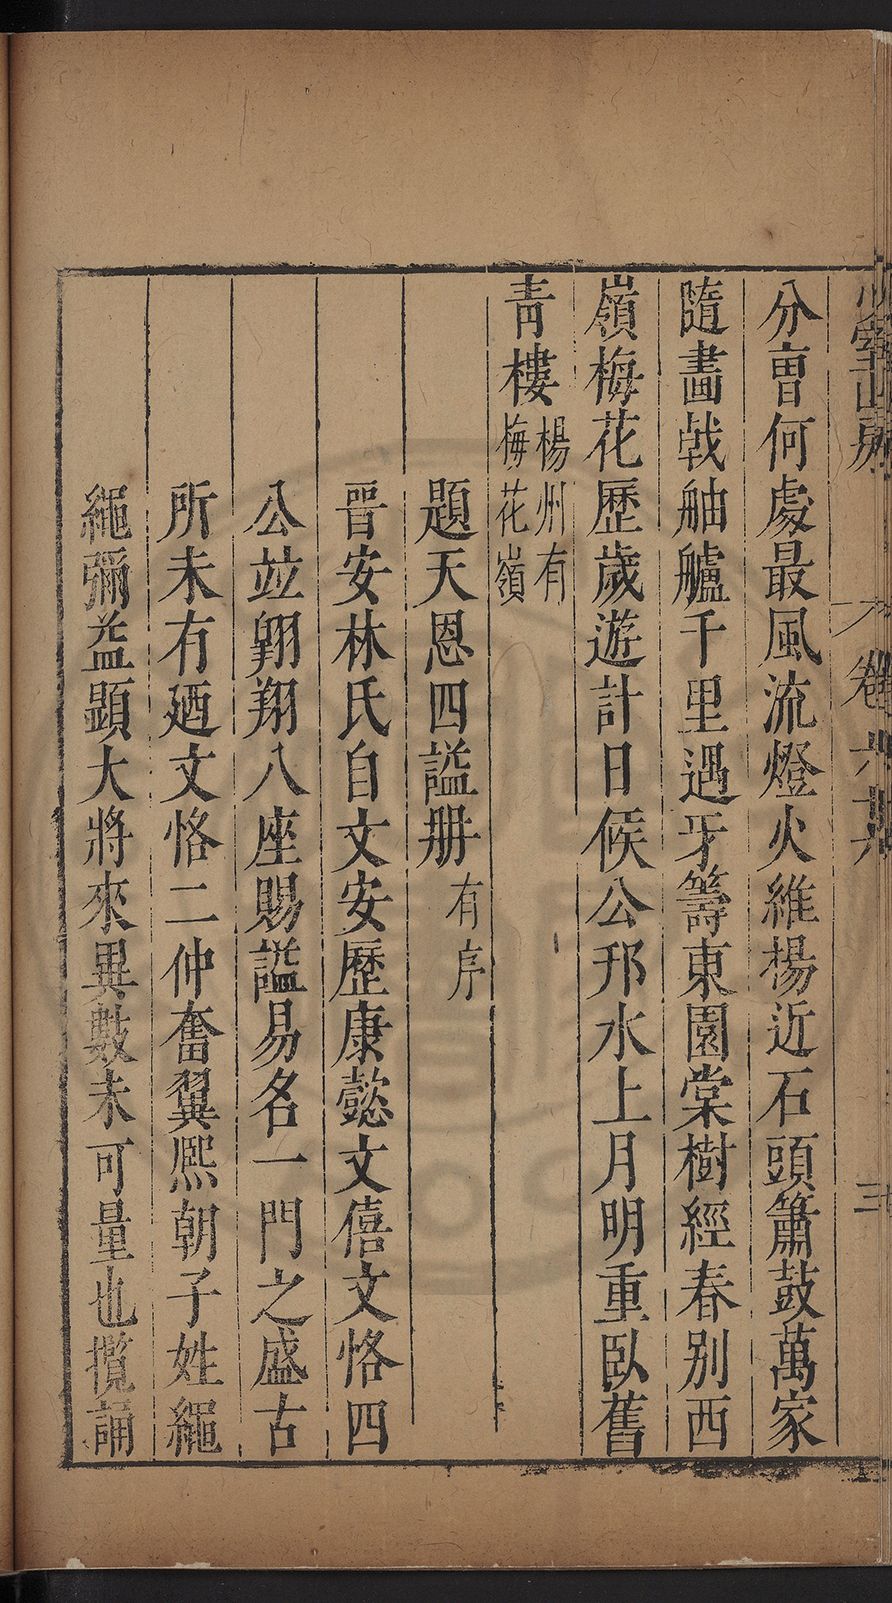 少室山房 卷六十六 三
分曹何處最風流燈火維楊近石頭簫鼓萬家
隨畵戟舳艫千里遇牙籌東園棠樹經春別西
嶺梅花歷歲遊計日候公邗水上月明重臥舊
青樓楊州有梅花嶺
題天恩四謚册有序
晉安林氏自文安歷康懿文僖文恪四
公竝翺翔八座賜謚易名一門之盛古
所未有廼文恪二仲奮翼熈朝子姓繩
繩彌益顕大將來異數未可量也攬誦